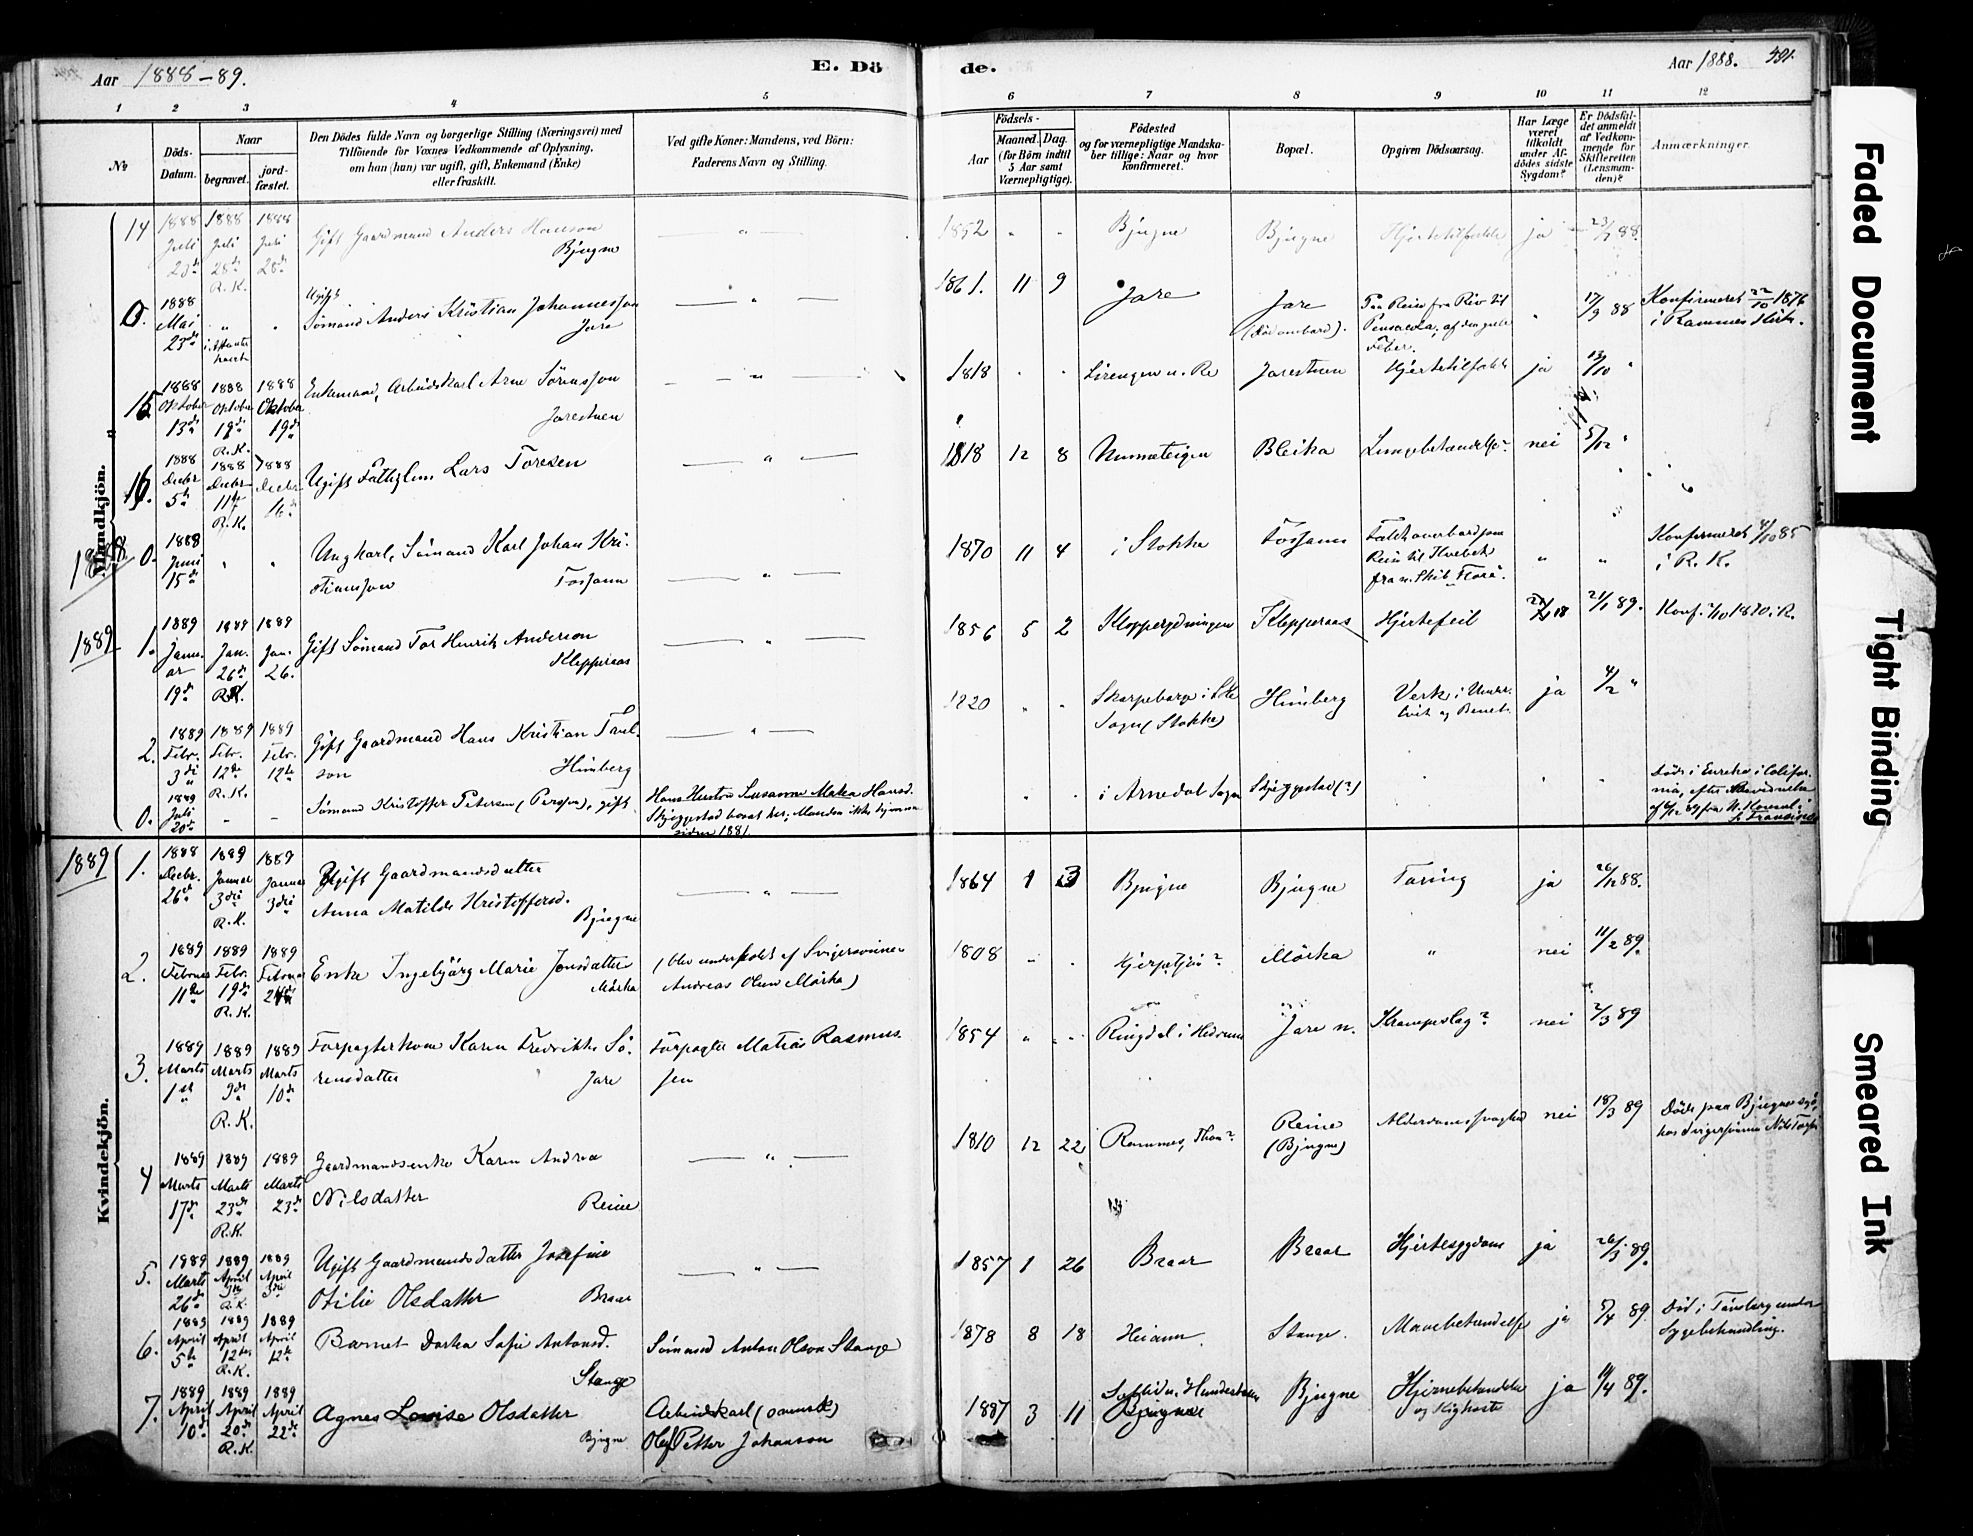 Aar 1888-89.
E. Dö
de.
Aar 1888.
391.
1 2 3 4 5 6 7 8 9 10 11 12
No
Döds-
Datum.
Naar
begravet.
jord-
fæstet.
Den Dödes fulde Navn og borgerlige Stilling (Næringsvei) med
Tilföiende for Voxnes Vedkommende af Oplysning,
om han (hun) var ugift, gift, Enkemand (Enke)
eller fraskilt.
Ved gifte Koner: Mandens, ved Börn:
Faderens Navn og Stilling.
Födsels-
Aar
Maaned. Dag.
(for Börn indtil
5 Aar samt
Værnepligtige).
Födested
og for værnepligtige Mandska-
ber tillige: Naar og hvor
konfirmeret.
Bopæl.
Opgiven Dödsaarsag.
Har Læge
været
tilkaldt
under Af-
dödes sidste
Sygdom?
Er Dödsfal-
det anmeldt
af Vedkom-
mende for
Skifteretten
(Lensman-
den)?
Anmærkninger.
Mandkjön.
14 1888 Juli 1888 Juli 28de R.K. 1888 Juli 28de
Gift Gaardmand Anders Hanson
Bjugne
1852 " " Bjugne Bjugne Hjertetilfælde ja 23/7 88.
0. 1888 Mai 23de " "
Ugift
Sömand Anders Kristian Johannesson
Jare
1861. 11 9 Jare Jare
Paa Reise fra Rio til
Pensacola, af den gule
Feber.
17/9 88
Konfirmeret 22/10 1876
i Ramnes Kirke.
15 1888 Oktober 13de 1888 Oktober 19de R.K. 1888 Oktober 19de
Enkemand, Arbeidskarl Arne Sörensson
Jarestuen
1818 " " Lirengen n. Re Jarestuen Hjertetilfælde ja 13/10 "
16. 1888 Decbr 5te 1888 Decbr 11te R.K. 1888 Decbr 16de
Ugift Fattiglem Lars Toresen
1818 12 8 Unneteigen Bleika Lungebetændelse? nei 5/12 "
1888
0. 1888 Juni 15de " "
Ungkarl, Sömand Karl Johan Kri-
stiansson Fossann
1870 11 4 i Stokke Fossann
Faldt overbord paa
Reise til Kvebek
fra n. Skib "Flora".
" "
Konfirmeret 4/10 85
i R. K.
1889
1. 1889 Janu-
ar 19de 1889 Jan. 26de R.K. 1889 Jan. 26.
Gift Sömand Tor Henrik Anderson
Klepperaas
1856 5 2 Klopperydningen Klepperaas Hjertefeil 21/1 89. Konf. 1/10 1870 i R.
2. 1889 Febr. 3die 1889 Febr. 12te R.K. 1889 Febr. 12te
Gift Gaardmand Hans Kristian Paul-
son Himberg
1820 " " Skarpeborg i Stke
Sogn (Stokke) Himberg Verk i Under-
livet og Benet. ja 4/2 "
0. 1889 Juli 20de - -
Sömand Kristoffer Petersen (Person), gift
Hans Hustru Susanne Malea Hansd.
Skjeggestad boeat her; Manden ikke hjemme
siden 1881.
" " i Arnedal Sogn Skjeggestad (?) " "
Döde i Eureka, i Califor-
nia, efter
Kvindekjön.
1889
1. 1888 Decbr. 26de 1889 Januar 3die R.K. 1889 Januar 3die
Ugift Gaardmandsdatter
Anna Matilde Kristoffersd.
Bjugne
1864 1 3 Bjugne Bjugne Tæring ja 26/12 88.
2. 1889 Februar 11te 1889 Febr. 19de R.K. 1889 Februar 24de
Enke Ingebjörg Marie Jonsdatter
Mörka
(blev underholdt af Svigersönnen
Andreas Olsen Mörka)
1808 - " Hjerpetjön? Mörka " nei 11/2 89.
3. 1889 Marts 1ste 1889 Marts 9de R.K. 1889 Marts 10de
Forpagterkone Karen Fredrikke Sö-
rensdatter Jare
Forpagter Matias Rasmus-
sen
1854 " " Ringdal i Hedrum Jare n. Krampeslag? nei 2/3 89
4 1889 Marts 17de 1889 Marts 23de R.K. 1889 Marts 23de
Gaardmandsenke Karen Andrea
Nilsdatter Reine
1810 12 22 Ramnes, Thon? Reine
(Bjugne) Alderdomssvaghed nei 18/3 89
Döde paa Bjugne
hos Svigersönnen Nils
5. 1889 Marts 26de 1889 April 3die R.K. 1889 April 3die
Ugift Gaardmandsdatter Josefine
Otilie Olsdatter Braar
1857 1 26 Braar Braar Hjertesygdom ja 26/3 89.
6. 1889 April 5te 1889 April 12te R.K. 1889 April 12te
Barnet Dorthea Sofie Antonsd.
Stange
Sömand Anton Olson Stange
1878 8 18 Heiann Stange. Mavebetændelse ja 5/4 89.
Död i Tönsberg under
Sygebehandling.
7. 1889 April 10de 1889 April 20de R.K. 1889 April 22de
Agnes Lovise Olsdatter
Bjugne
Arbeidskarl (svensk)
Olof Petter Johanson
1887 3 11 Bjugne Bjugne Hjernebetændelse
og Kighoste ja 11/4 89.
Faded Document
Tight Binding
Smeared Ink